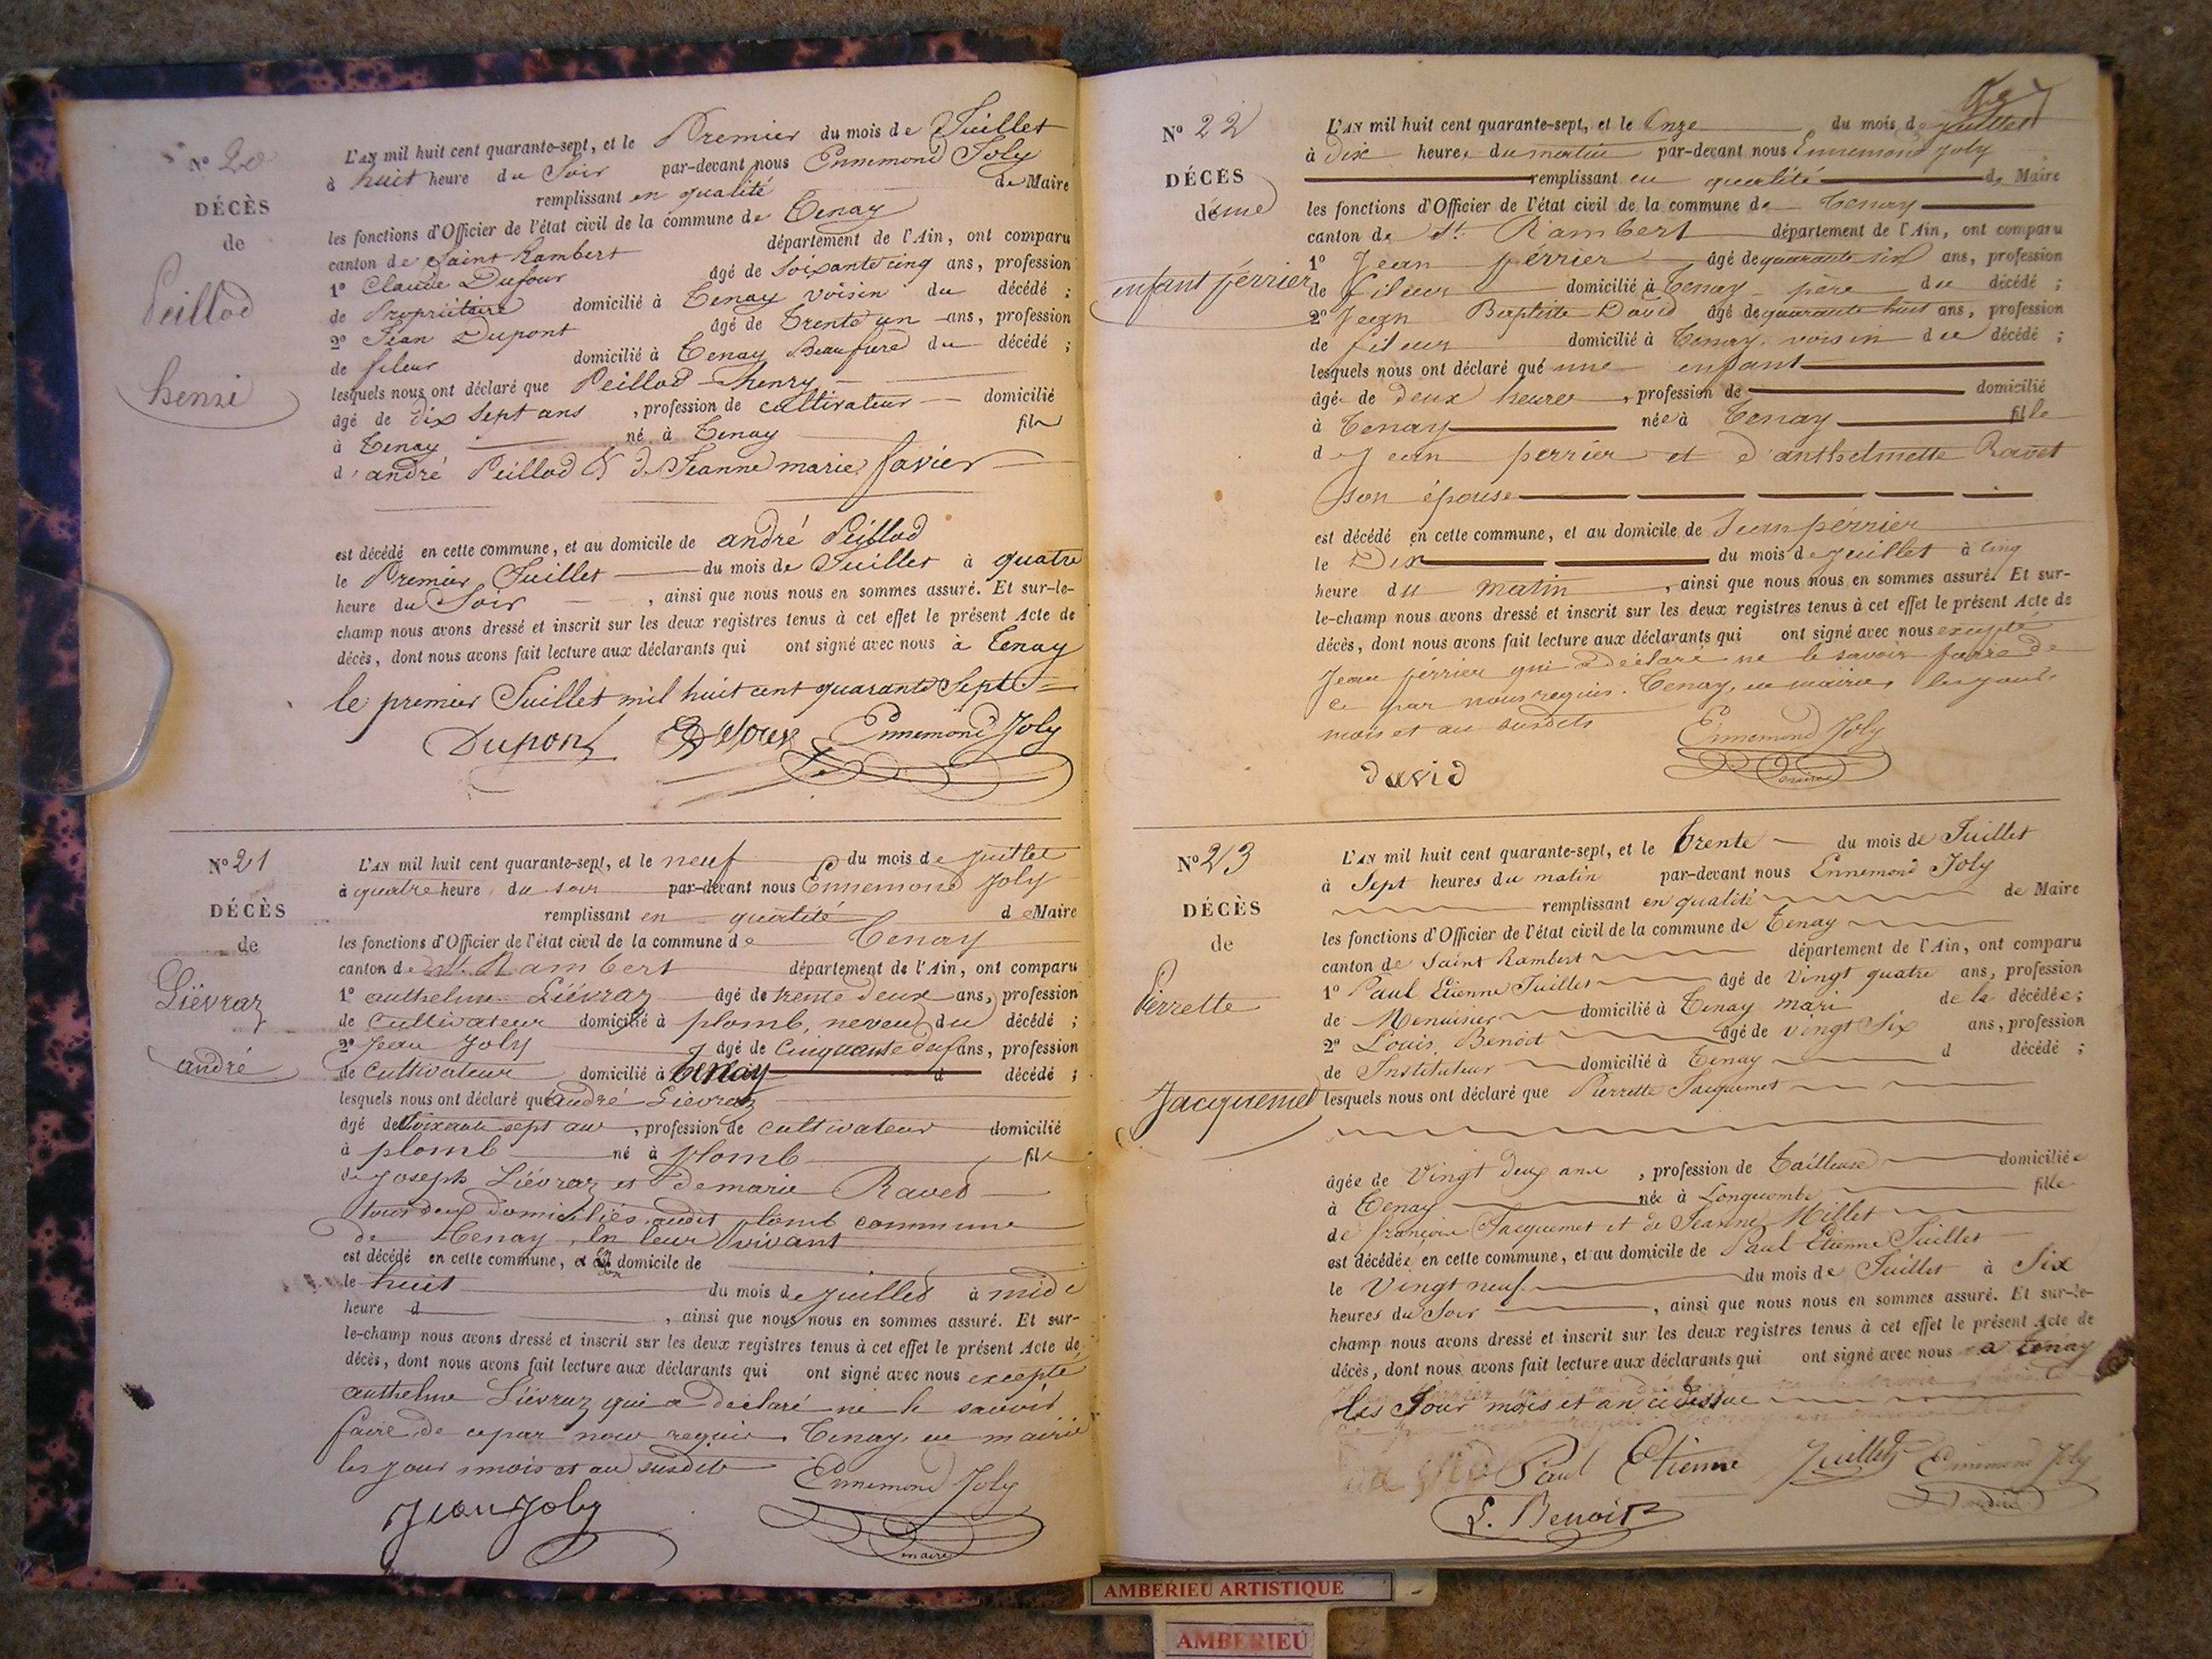 N° 20
DÉCÈS
de
Peillod
henri
L'AN mil huit cent quarante-sept, et le Premier du mois de Juillet
à huit heure du Soir par-devant nous Ennemond Joly
remplissant en qualité de Maire
les fonctions d'Officier de l'état civil de la commune de Tenay
canton de Saint Rambert département de l'Ain, ont comparu
1° Claude Dufour âgé de Soixante cinq ans, profession
de Propriétaire domicilié à Tenay voisin du décédé ;
2° Jean Dupont âgé de Trente un ans, profession
de fileur domicilié à Tenay Beaufrere du décédé ;
lesquels nous ont déclaré que Peillod henry
âgé de dix Sept ans , profession de cultivateur domicilié
à Tenay né à Tenay fils
d'andré Peillod & de Jeanne marie favier
est décédé en cette commune, et au domicile de andré Peillod
le Premier Juillet du mois de Juillet à quatre
heure du Soir , ainsi que nous nous en sommes assuré. Et sur-le-
champ nous avons dressé et inscrit sur les deux registres tenus à cet effet le présent Acte de
décès, dont nous avons fait lecture aux déclarants qui ont signé avec nous à Tenay
le premier Juillet mil huit cent quarante Sept
Dupont Ennemond Joly
N° 21
DÉCÈS
de
Liévraz
andré
L'AN mil huit cent quarante-sept, et le neuf du mois de juillet
à quatre heure du soir par-devant nous Ennemond Joly
remplissant en qualité de Maire
les fonctions d'Officier de l'état civil de la commune de Tenay
canton de St. Rambert département de l'Ain, ont comparu
1° anthelme Liévraz âgé de trente deux ans, profession
de cultivateur domicilié à plomb, neveu du décédé ;
2° Jean Joly âgé de Cinquante ans, profession
de cultivateur domicilié à tenay d décédé ;
lesquels nous ont déclaré que andré Liévraz
âgé de soixante sept ans , profession de cultivateur domicilié
à plomb né à plomb fils
de joseph Liévraz et de marie Raved
tous deux domiciliés audit plomb commune
de tenay, en leur vivant
est décédé en cette commune, et en son domicile de
le huit du mois de juilled à midi
heure d , ainsi que nous nous en sommes assuré. Et sur-
le-champ nous avons dressé et inscrit sur les deux registres tenus à cet effet le présent Acte de
décès, dont nous avons fait lecture aux déclarants qui ont signé avec nous excepté
anthelme Liévraz qui a déclaré ne le savoir
faire de ce par nous requis. Tenay, en mairie
les jour mois et an susdits
Ennemond Joly
Jean Joly
maire
N° 22
DÉCÈS
d'une
enfant perrier
L'AN mil huit cent quarante-sept, et le Onze du mois de juillet
à dix heures du matin par-devant nous Ennemond Joly
remplissant en qualité de Maire
les fonctions d'Officier de l'état civil de la commune de Tenay
canton de St. Rambert département de l'Ain, ont comparu
1° Jean périer âgé de quarante six ans, profession
de fileur domicilié à Tenay père du décédé ;
2° Jean Baptiste David âgé de quarante huit ans, profession
de fileur domicilié à Tenay voisin du décédé ;
lesquels nous ont déclaré que une enfant
âgé de deux heures , profession de domicilié
à Tenay née à Tenay fille
de Jean perrier et d'anthelmette Ravet
son épouse
est décédé en cette commune, et au domicile de Jean périer
le Dix du mois de juillet à cinq
heure du matin , ainsi que nous nous en sommes assuré. Et sur-
le-champ nous avons dressé et inscrit sur les deux registres tenus à cet effet le présent Acte de
décès, dont nous avons fait lecture aux déclarants qui ont signé avec nous excepté
Jean périer qui a déclaré ne le savoir faire de
ce par nous requis. Tenay, en mairie, les jour
mois et an susdits
Ennemond Joly
maire
david
N° 23
DÉCÈS
de
Pierrette
Jacquemet
L'AN mil huit cent quarante-sept, et le trente du mois de Juillet
à Sept heures du matin par-devant nous Ennemond Joly
remplissant en qualité de Maire
les fonctions d'Officier de l'état civil de la commune de Tenay
canton de Saint Rambert département de l'Ain, ont comparu
1° Paul Etienne Juillet âgé de vingt quatre ans, profession
de Menuisier domicilié à Tenay mari de la décédée ;
2° Louis Benoit âgé de vingt Six ans, profession
de Instituteur domicilié à Tenay d décédé ;
lesquels nous ont déclaré que Pierrette Jacquemet
âgée de Vingt deux ans , profession de Tailleuse domiciliée
à Tenay née à Longecombe fille
de françois Jacquemet et de Jeanne Millet
est décédée en cette commune, et au domicile de Paul Etienne Juillet
le Vingt neuf du mois de Juillet à Six
heures du Soir , ainsi que nous nous en sommes assuré. Et sur-le-
champ nous avons dressé et inscrit sur les deux registres tenus à cet effet le présent Acte de
décès, dont nous avons fait lecture aux déclarants qui ont signé avec nous a tenay
les Jour mois et an ci dessus
Paul Etienne Juillet Ennemond Joly
L. Benoit
AMBERIEU ARTISTIQUE
AMBERIEU